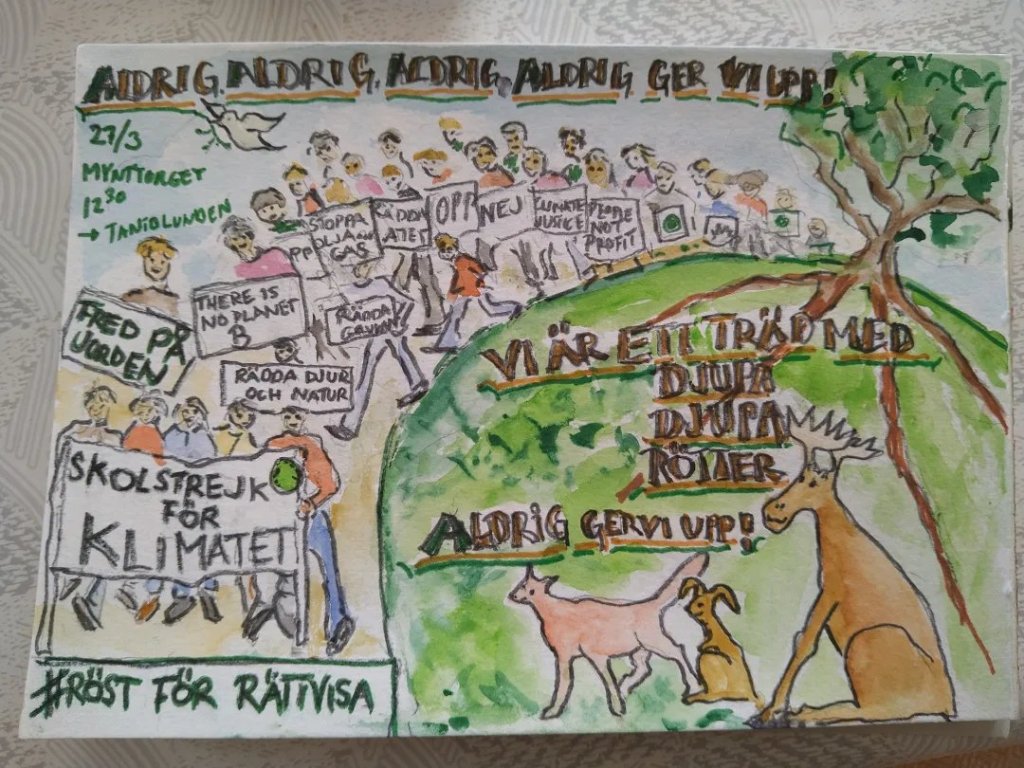 ALDRIG, ALDRIG, ALDRIG, ALDRIG GER VI UPP!
27/3
MYNTTORGET
12 30
→ TANTOLUNDEN
STOPPA
OLJA
GAS
RÄDDA
OPP
NEJ
CLIMATE
JUSTICE
PEOPLE
NOT
PROFIT
FRED PÅ
JORDEN
THERE IS
NO PLANET
B
RÄDDA
RÄDDA DJUR
OCH NATUR
SKOLSTREJK
FÖR
KLIMATET
VI ÄR ETT TRÄD MED
DJUPA
DJUPA
RÖTTER
ALDRIG GER VI UPP!
#RÖST FÖR RÄTTVISA